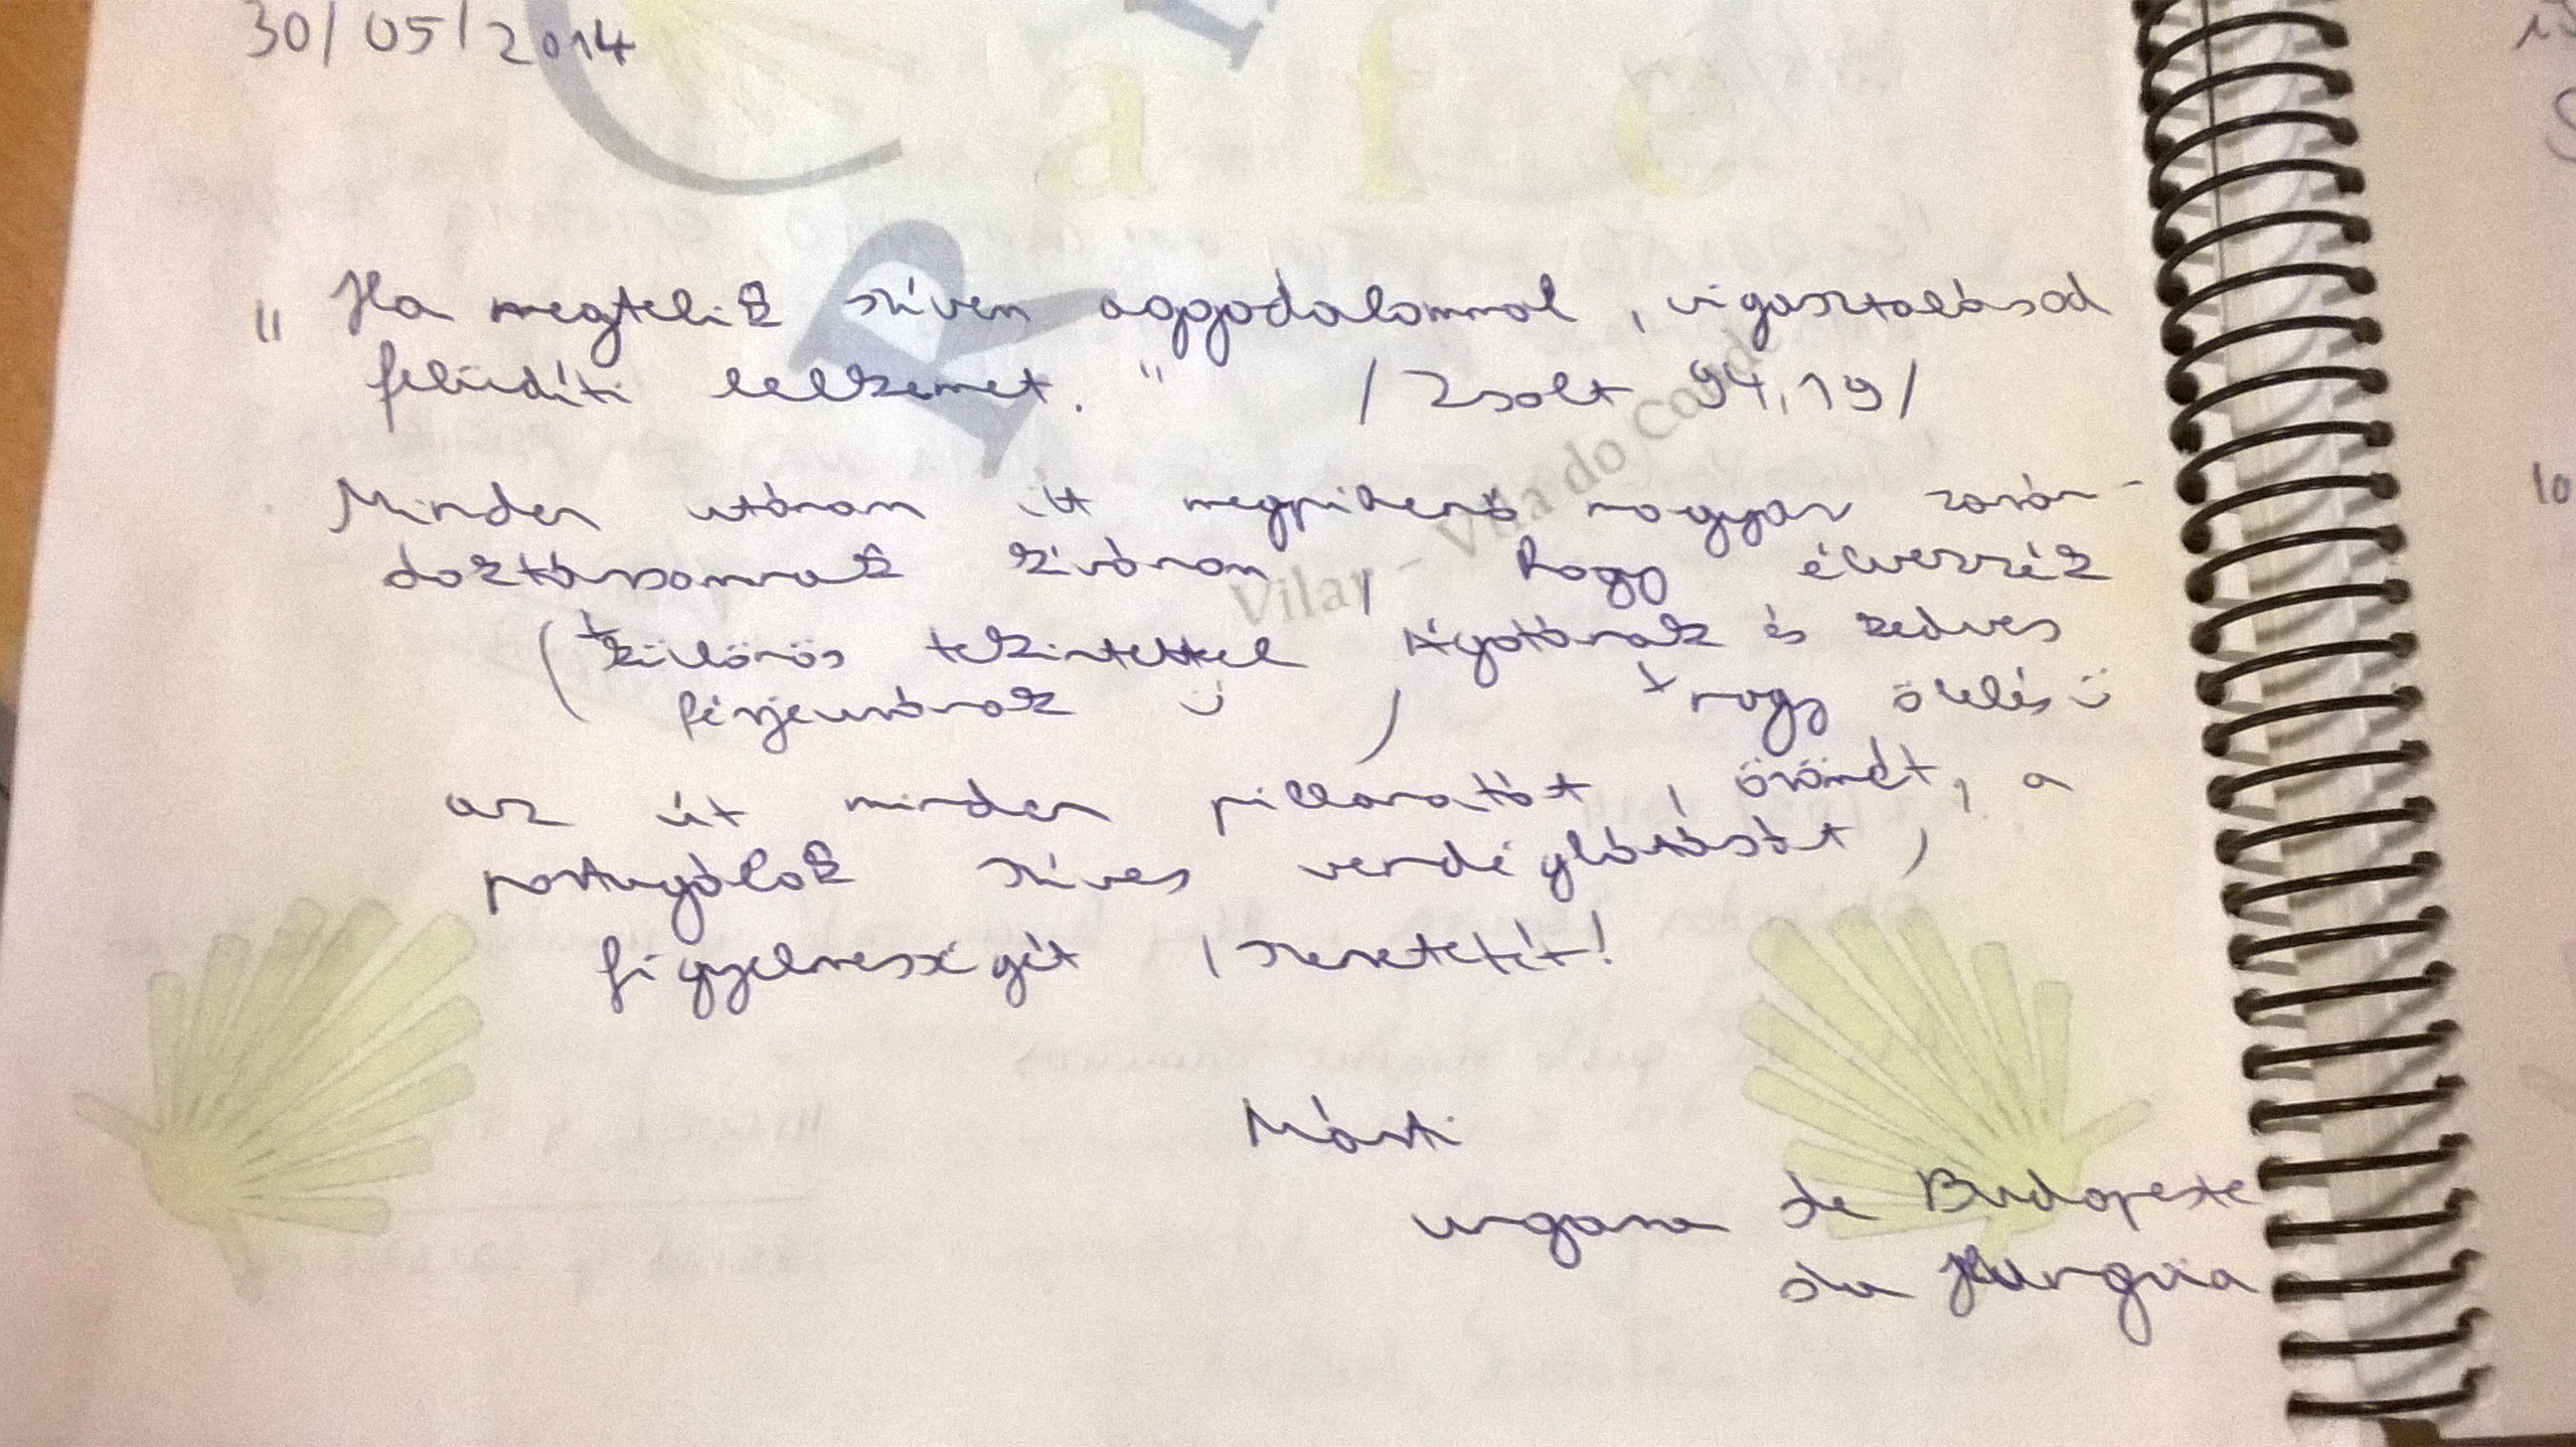 30/05/2014
a f e
R
„Ha megtelik szívem aggodalommal, vigasztalásod
felüdíti lelkemet." /Zsolt 94,19/
Vilar - Vila do Conde
Minden utánam itt megpihenő magyar zarán-
doktársamnak kívánom, hogy élvezzék
(+ különös tekintettel Ágotának és kedves
férjeurának ü) + nagy ölelés ü
az út minden pillanatát, örömét, a
portugálok szíves vendéglátását,
figyelmességét, szeretetét!
Márti
ungara de Budapeste
da Hungria